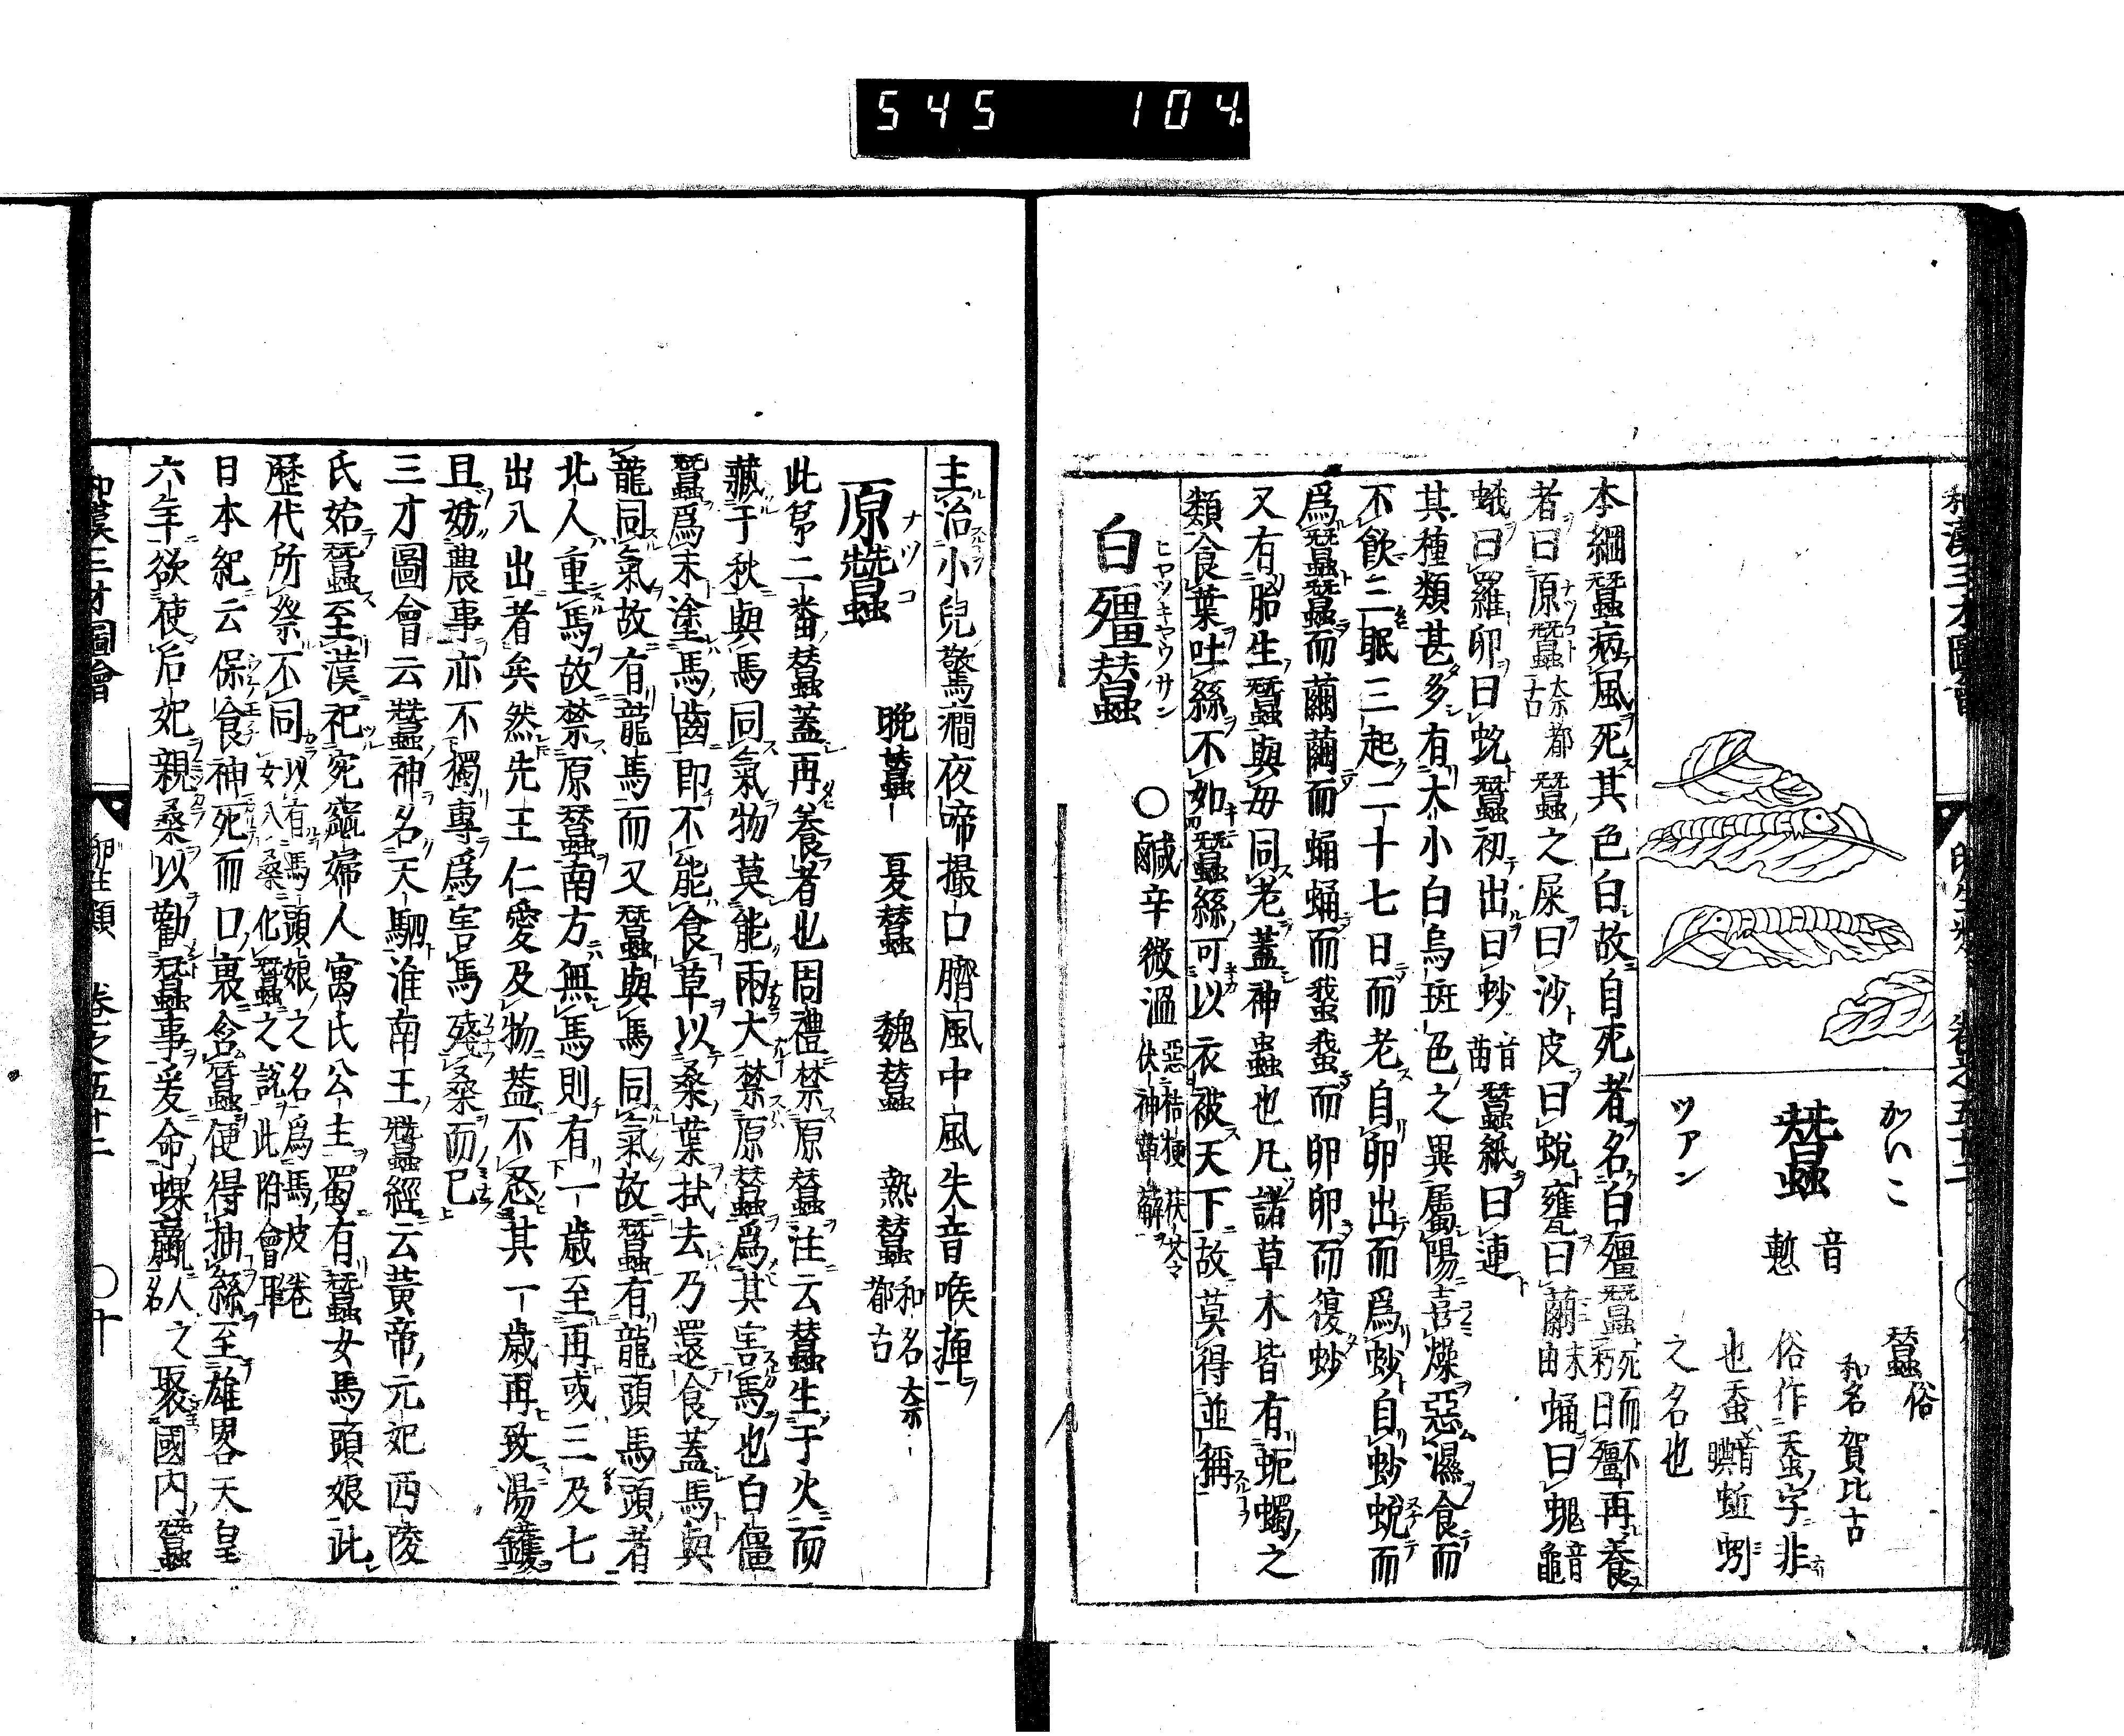 545 104
和漢三才圖會 卵生類 卷之五十二
かいこ
蠶
音慙
ツアン
蠶俗
和名賀比古
俗作蚕字非
也蚕音蚕蚓
之名也
本綱蠶病風死其色白故自死者名白殭蠶死而不朽曰殭再養
者曰原蠶奈都古蠶之屎曰沙皮曰蛻甕曰繭蛹曰螝音龜
蛾曰羅卵曰蠶初出曰䖢音苗蠶紙曰連
其種類甚多有大小白烏斑色之異屬陽喜燥惡濕食而
不飲三眠三起二十七日而老自卵出而爲䖢自䖢蛻而
爲蠶蠶而繭繭而蛹蛹而蛾蛾而卵卵而復䖢
又有胎生蠶與母同老蓋神蟲也凡諸草木皆有蚅蠋之
類食葉吐絲不如蠶絲可以衣被天下故莫得並稱
白殭蠶
ヒヤツキヤウサン
○鹹辛微溫 惡桔梗茯苓茯神萆薢
主治小兒驚癎夜啼撮口臍風中風失音喉痺
原蠶
ナツコ
晚蠶 夏蠶 魏蠶 熱蠶 和名奈都古
此第二番蠶蓋再養者也周禮禁原蠶注云蠶生于火而
藏于秋與馬同氣物莫能兩大禁原蠶爲其害馬也白僵
蠶爲末塗馬齒即不能食草以桑葉拭去乃還食蓋馬與
龍同氣故有龍馬而又蠶與馬同氣故蠶有龍頭馬頭者
北人重馬故禁原蠶南方無馬則有一歲至再或三及七
出八出者矣然先王仁愛及物蓋不忍其一歲再致湯鑊
且妨農事亦不獨專爲害馬殘桑而已
三才圖會云蠶神名天駟淮南王蠶經云黃帝元妃西陵
氏始蠶至漢祀宛窳婦人寓氏公主蜀有蠶女馬頭娘此
歷代所祭不同以有馬頭娘之名爲馬皮卷女入桑化蠶之說此附會耳
日本紀云保食神死而口裏含蠶便得抽絲至雄畧天皇
六年欲使后妃親桑以勸蠶事爰命蜾蠃人名之聚國內蠶
和漢三才圖會 卵生類 卷之五十二 ○十